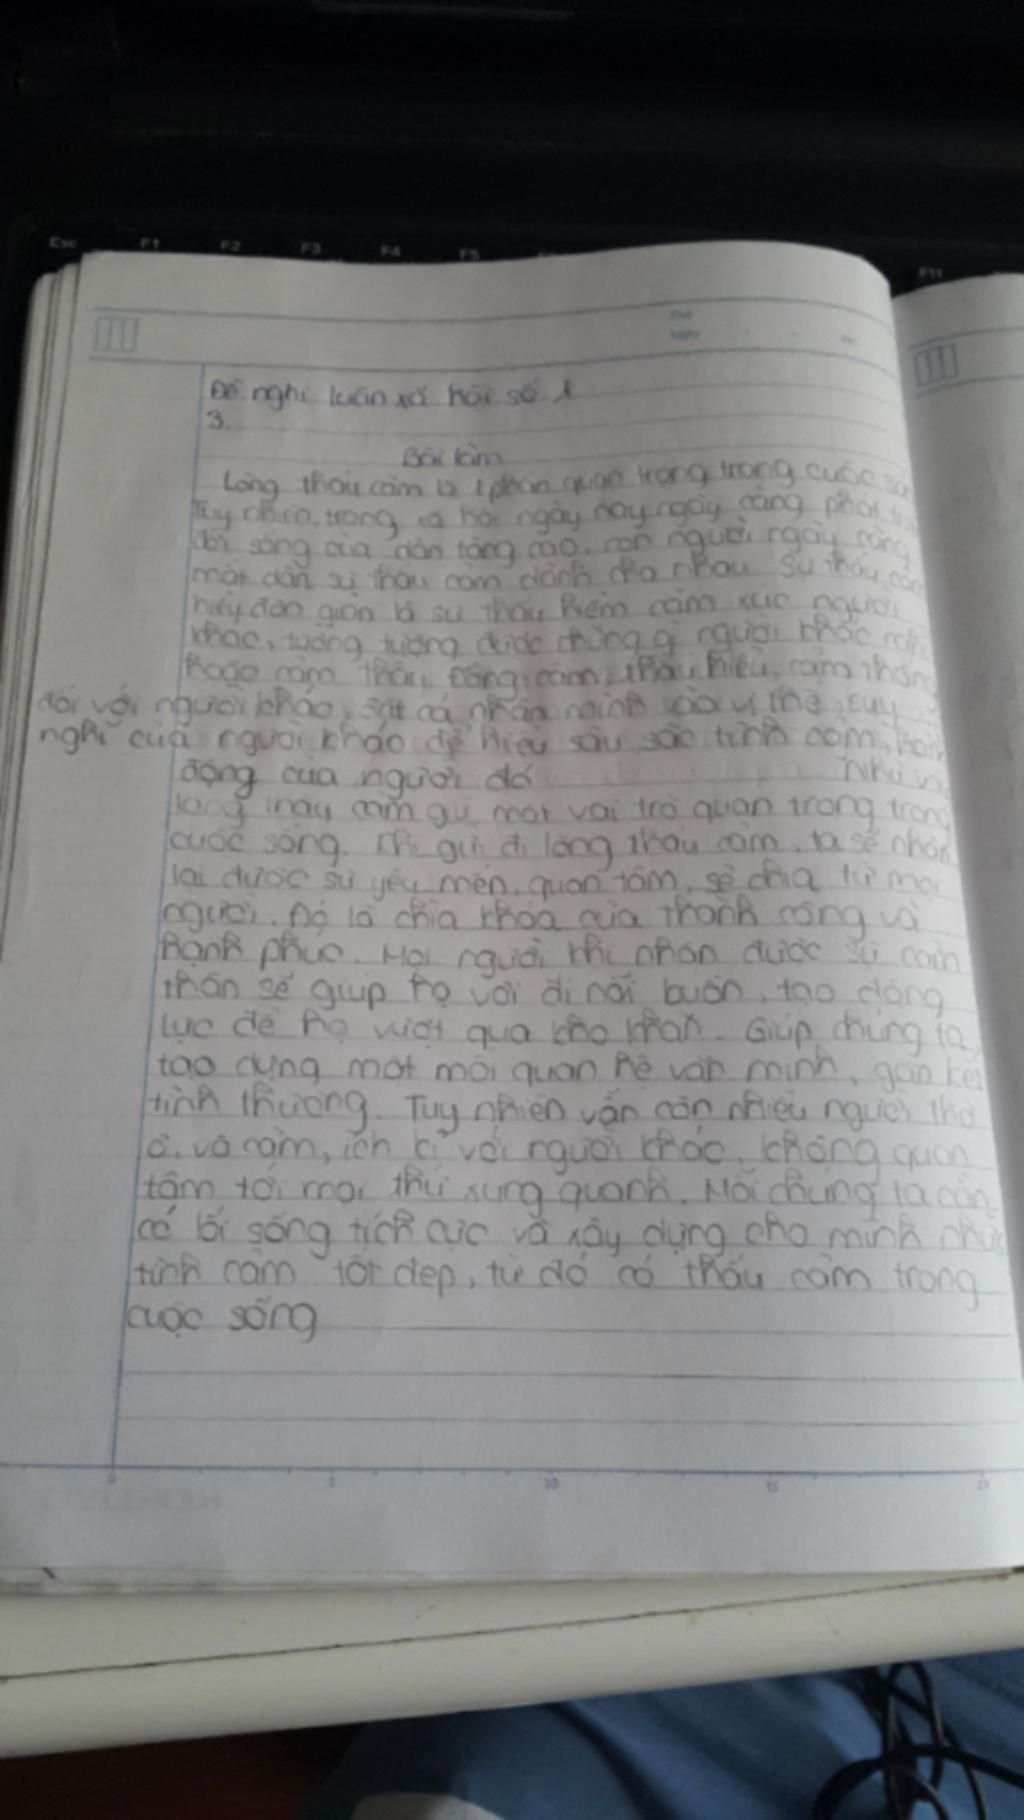 Esc F1 F2 F3 F4 F5 F11
Đề nghị luận xã hội số 1
3.
Bài làm
Lòng thấu cảm là 1 phần quan trọng trong cuộc
Tuy nhiên, trong xã hội ngày nay ngày càng phát
đời sống của dân tăng cao, con người ngày càng
mất dần sự thấu cảm dành cho nhau. Sự thấu
hiểu đơn giản là sự thấu hiểm cảm xúc người
khác, tưởng tượng được những gì người khác
hoặc cảm thấy. Đồng cảm, thấu hiểu, cảm thông
đối với người khác, đặt cá nhân mình vào vị thế, suy
nghĩ của người khác để hiểu sâu sắc tình cảm,
động của người đó Như
lòng thấu cảm giữ một vai trò quan trọng trong
cuộc sống. Khi gửi đi lòng thấu cảm, ta sẽ nhận
lại được sự yêu mến, quan tâm, sẻ chia từ mọi
người. Đó là chìa khóa của thành công và
hạnh phúc. Mọi người khi nhận được sự cảm
thôn sẽ giúp họ vơi đi nỗi buồn, tạo động
lực để họ vượt qua khó khăn. Giúp chúng ta
tạo dựng một mối quan hệ văn minh, gắn kết
tình thương. Tuy nhiên vẫn còn nhiều người thờ
ơ, vô cảm, ích kỉ với người khác, không quan
tâm tới mọi thứ xung quanh. Mỗi chúng ta cần
có lối sống tích cực và xây dựng cho mình
tình cảm tốt đẹp, từ đó có thấu cảm trong
cuộc sống
0 5 10 15 20